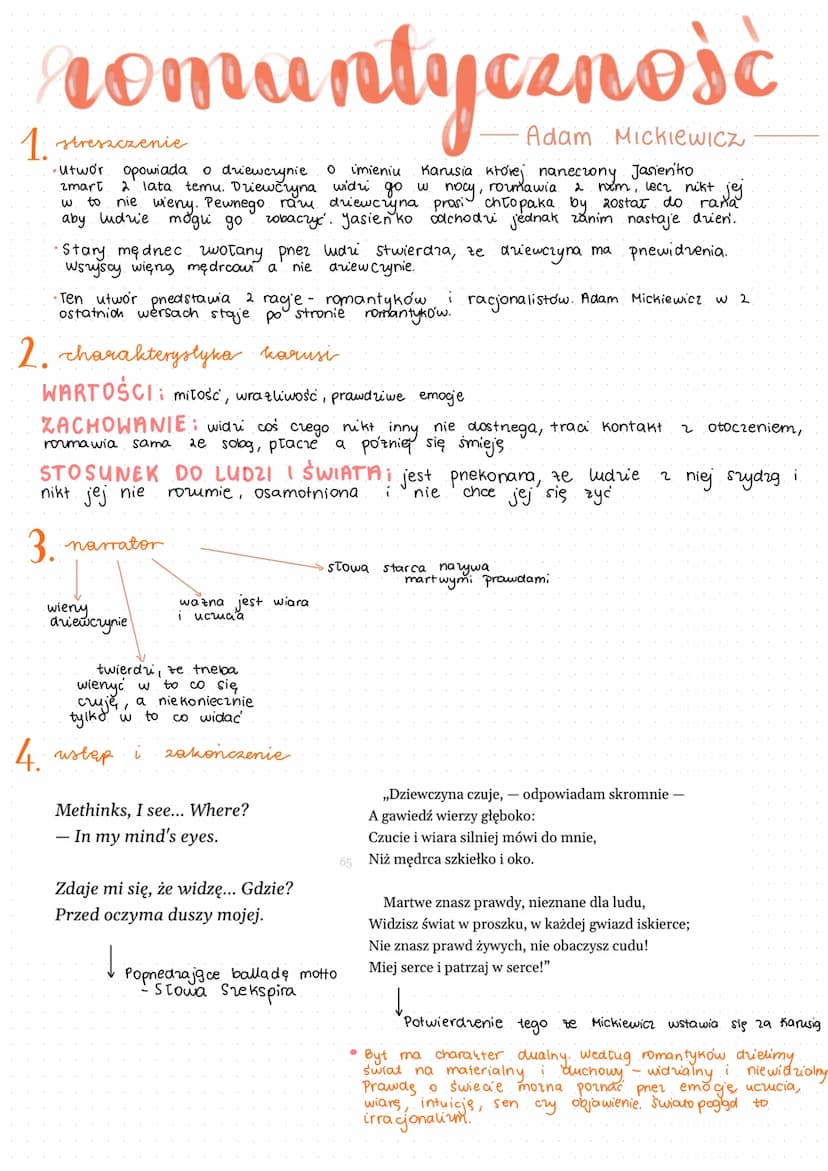 romantyczność
Adam Mickiewicz
1. streszczenie
•Utwór opowiada o dziewczynie o imieniu Karusia której narzeczony Jasieńko
zmarł 2 lata temu. Dziewczyna widzi go w nocy, rozmawia z nim, lecz nikt jej
w to nie wierzy. Pewnego razu dziewczyna prosi chłopaka by został do rana
aby ludzie mogli go zobaczyć. Jasieńko odchodzi jednak zanim nastaje dzień.
•Stary mędrzec zwołany przez ludzi stwierdza, że dziewczyna ma przewidzenia.
Wszyscy wierzą mędrcowi a nie dziewczynie.
•Ten utwór przedstawia 2 racje - romantyków i racjonalistów. Adam Mickiewicz w 2
ostatnich wersach staje po stronie romantyków.
2. charakterystyka karusi
WARTOŚCI: miłość, wrażliwość, prawdziwe emocje
ZACHOWANIE: widzi coś czego nikt inny nie dostrzega, traci kontakt z otoczeniem,
rozmawia sama ze sobą, płacze a później się śmieje
STOSUNEK DO LUDZI I ŚWIATA: jest przekonana, że ludzie z niej szydzą i
nikt jej nie rozumie, osamotniona i nie chce jej się żyć
3. narrator
słowa starca nazywa
martwymi prawdami
wierzy
dziewczynie
ważna jest wiara
i uczucia
twierdzi, że trzeba
wierzyć w to co się
czuje, a niekoniecznie
tylko w to co widać
4. wstęp i zakończenie
Methinks, I see... Where?
— In my mind's eyes.
Zdaje mi się, że widzę... Gdzie?
Przed oczyma duszy mojej.
Poprzedzające balladę motto
- Słowa Szekspira
„Dziewczyna czuje, — odpowiadam skromnie —
A gawiedź wierzy głęboko:
Czucie i wiara silniej mówi do mnie,
65 Niż mędrca szkiełko i oko.
Martwe znasz prawdy, nieznane dla ludu,
Widzisz świat w proszku, w każdej gwiazd iskierce;
Nie znasz prawd żywych, nie obaczysz cudu!
Miej serce i patrzaj w serce!”
Potwierdzenie tego że Mickiewicz wstawia się za Karusią
• Byt ma charakter dualny. Według romantyków dzielimy
świat na materialny i duchowy - widzialny i niewidzialny
Prawdę o świecie można poznać przez emocje, uczucia,
wiarę, intuicję, sen czy objawienie. Światopogląd to
irracjonalizm.